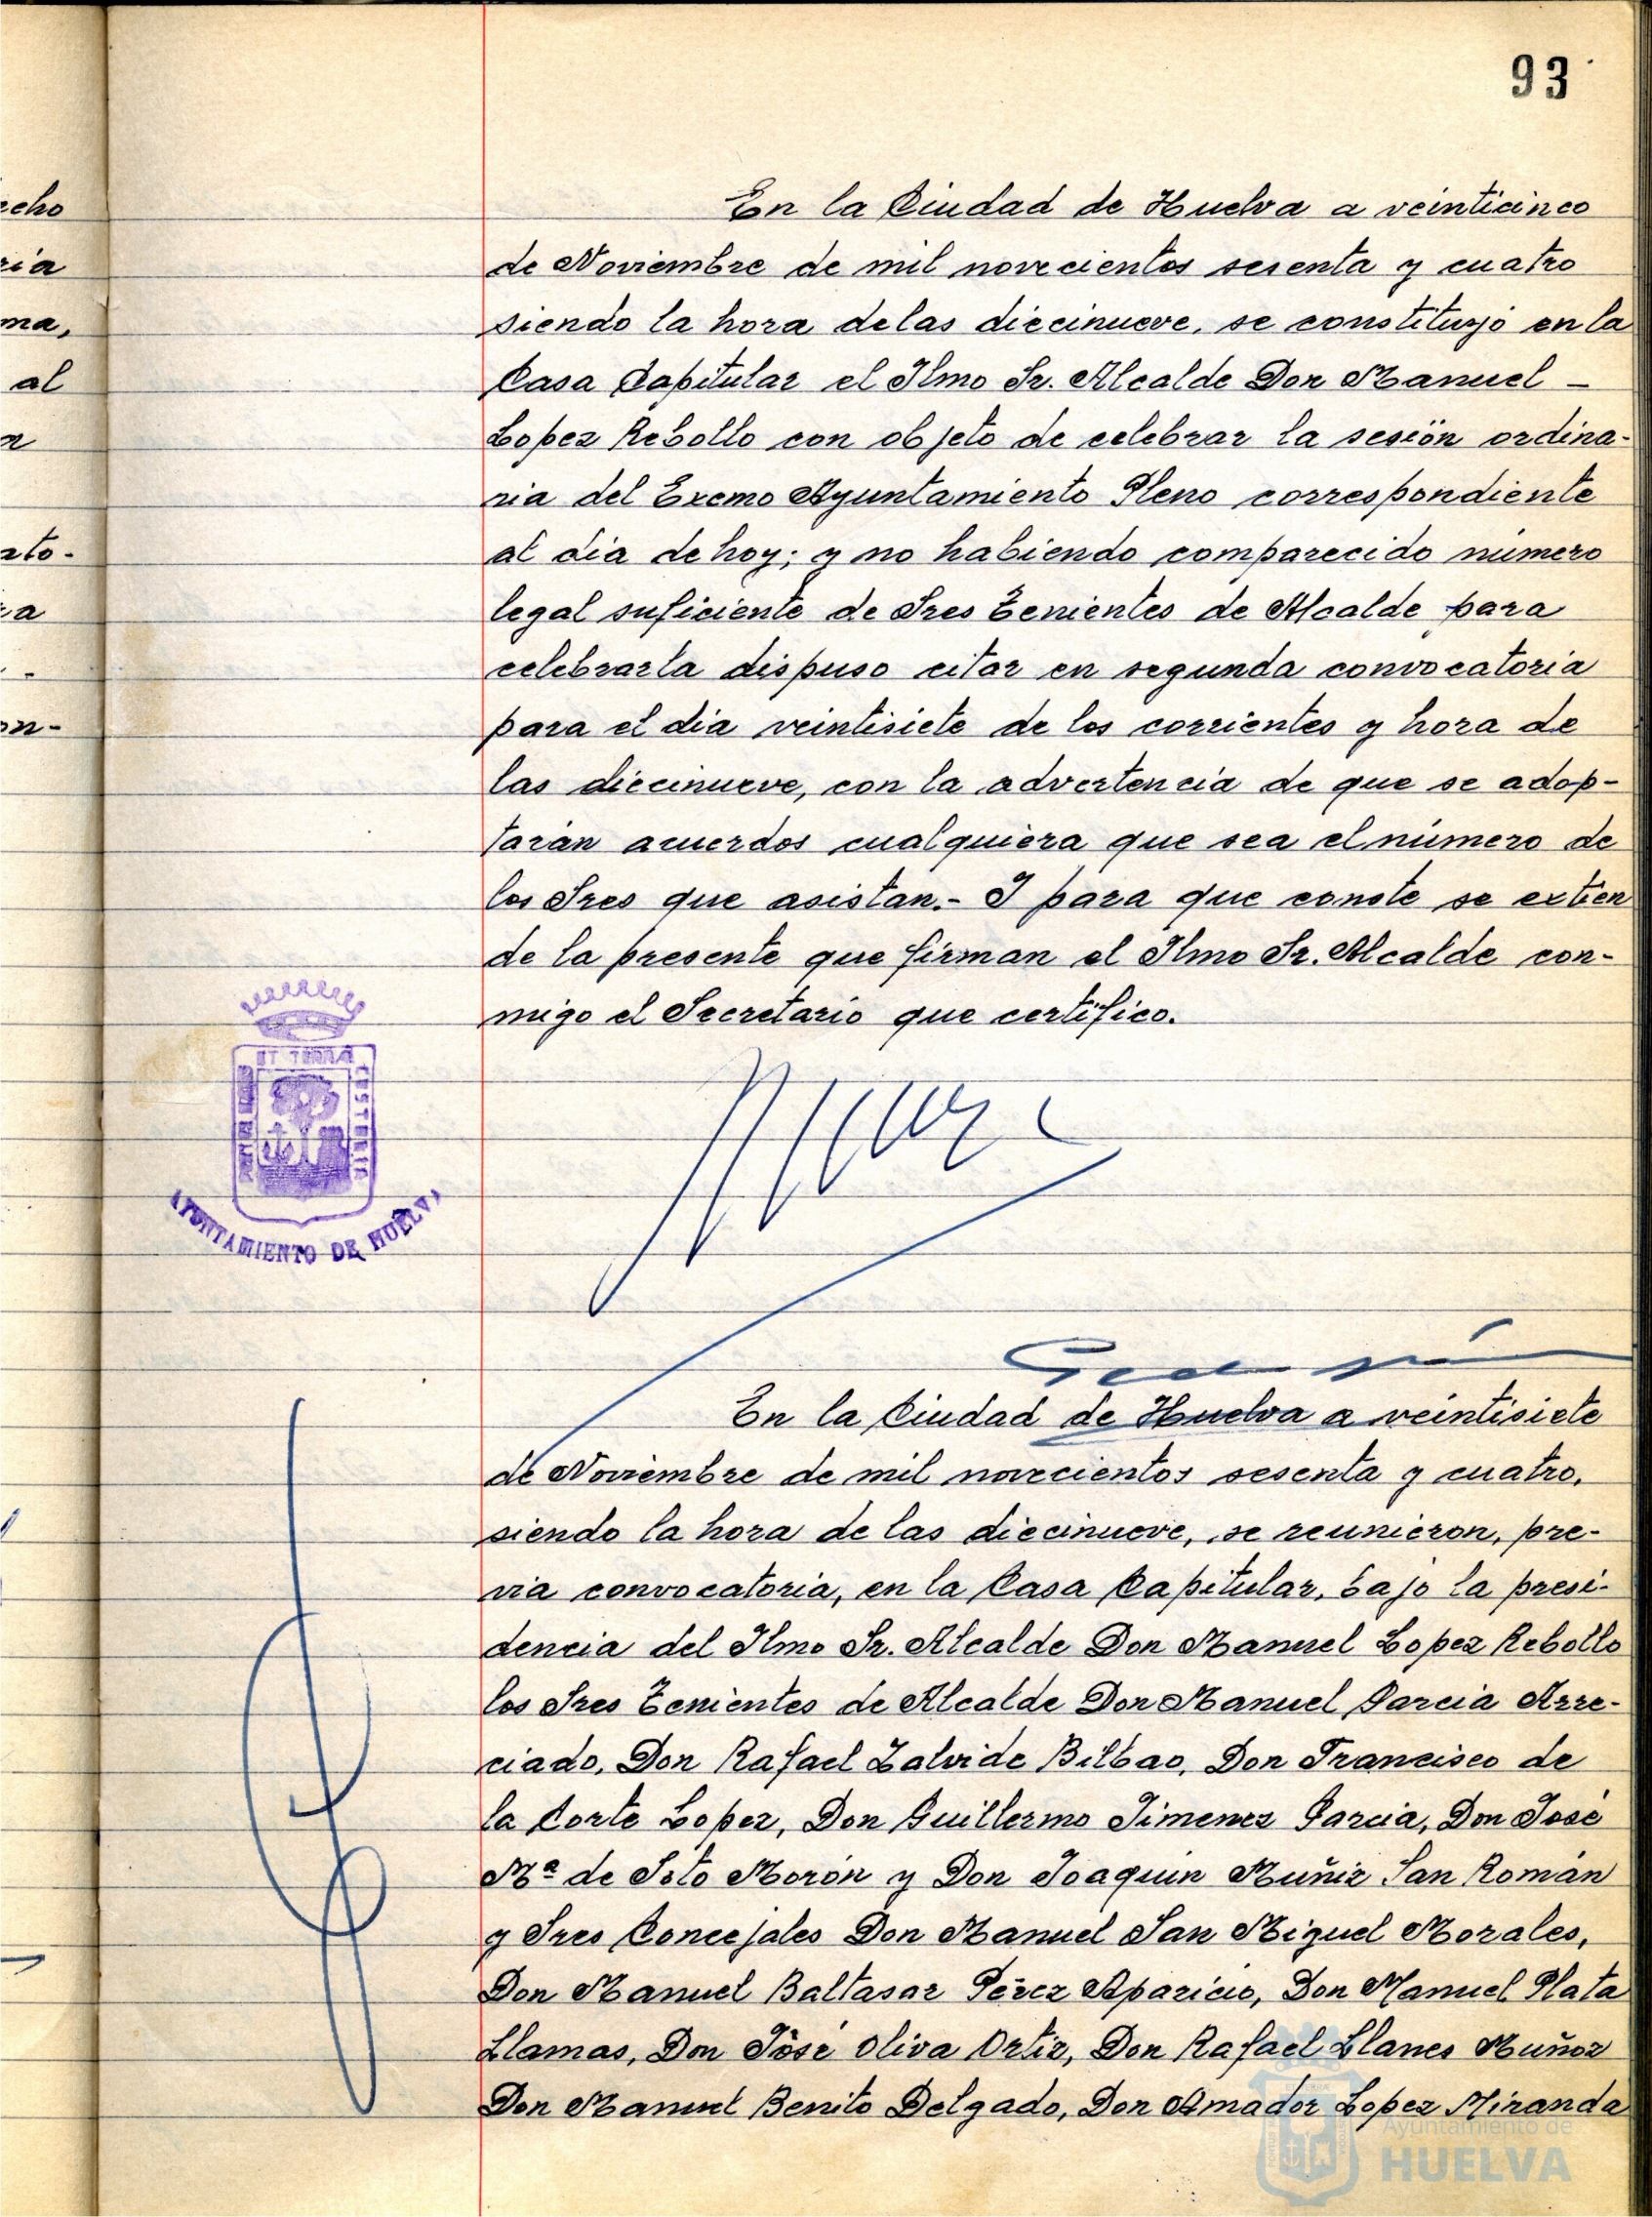 93
echo
ria
ma,
al
n
rto-
a
-
on-
En la Ciudad de Huelva a veinticinco
de Noviembre de mil novecientos sesenta y cuatro
siendo la hora de las diecinueve, se constituyó en la
Casa Capitular el Ilmo Sr. Alcalde Don Manuel -
Lopez Rebollo con objeto de celebrar la sesión ordina-
ria del Excmo Ayuntamiento Pleno correspondiente
al dia de hoy; y no habiendo comparecido numero
legal suficiente de Sres Tenientes de Alcalde para
celebrarla dispuso citar en segunda convocatoria
para el dia veintisiete de los corrientes y hora de
las diecinueve, con la advertencia de que se adop-
tarán acuerdos cualquiera que sea el número de
los Sres que asistan.- Y para que conste se extien
de la presente que firman el Ilmo Sr. Alcalde con-
migo el Secretario que certifico.
ET TERRÆ
AYUNTAMIENTO DE HUELVA
En la Ciudad de Huelva a veintisiete
de Noviembre de mil novecientos sesenta y cuatro,
siendo la hora de las diecinueve, se reunieron, pre-
via convocatoria, en la Casa Capitular, bajo la presi-
dencia del Ilmo Sr. Alcalde Don Manuel Lopez Rebollo
los Sres Tenientes de Alcalde Don Manuel Garcia Arre-
ciado, Don Rafael Zalvide Bilbao, Don Francisco de
la Corte Lopez, Don Guillermo Jimenez Garcia, Don José
Mª de Soto Morón y Don Joaquin Muñiz San Román
y Sres Concejales Don Manuel San Miguel Morales,
Don Manuel Baltasar Pérez Aparicio, Don Manuel Plata
Llamas, Don José Oliva Ortiz, Don Rafael Llanes Muñoz
Don Manuel Benito Delgado, Don Amador Lopez Miranda
Ayuntamiento de
HUELVA